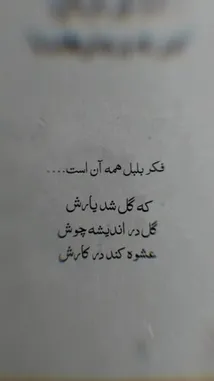 فکر بلبل همه آن است....
که گل شد یارش
گل در اندیشه چوش
عشوه کند در کارش